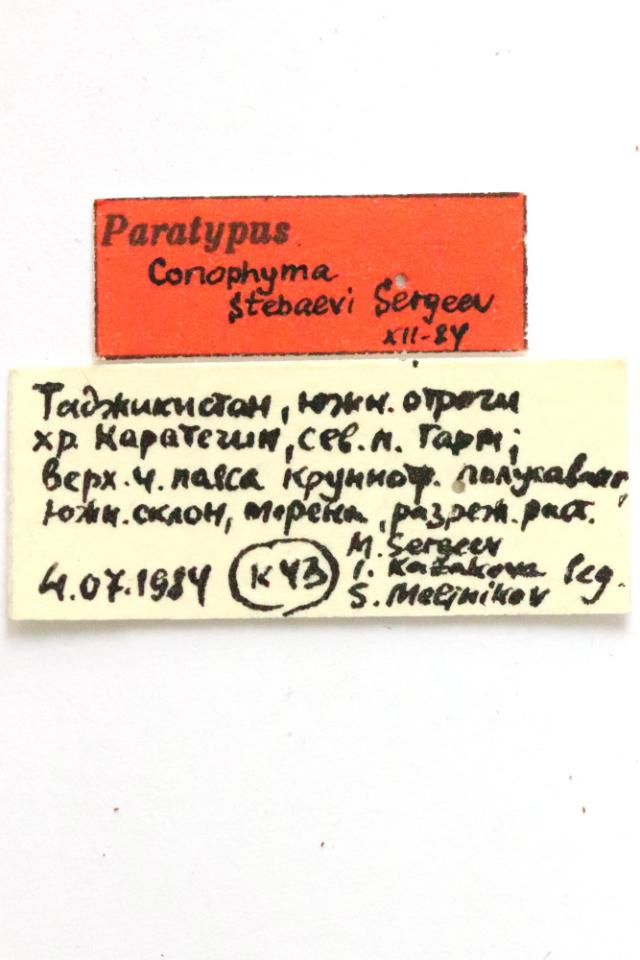 Paratypus
Conophyma
stebaevi Sergeev
XII-84
Таджикистан, южн. отроги
хр. Каратегин, сев. п. Гарм;
верх. ч. пояса крупнотр. полусаванн
южн. склон, морена, разреж. раст.
4.07.1984 К43 M. Sergeev
I. Kazakova leg.
S. Meljnikov